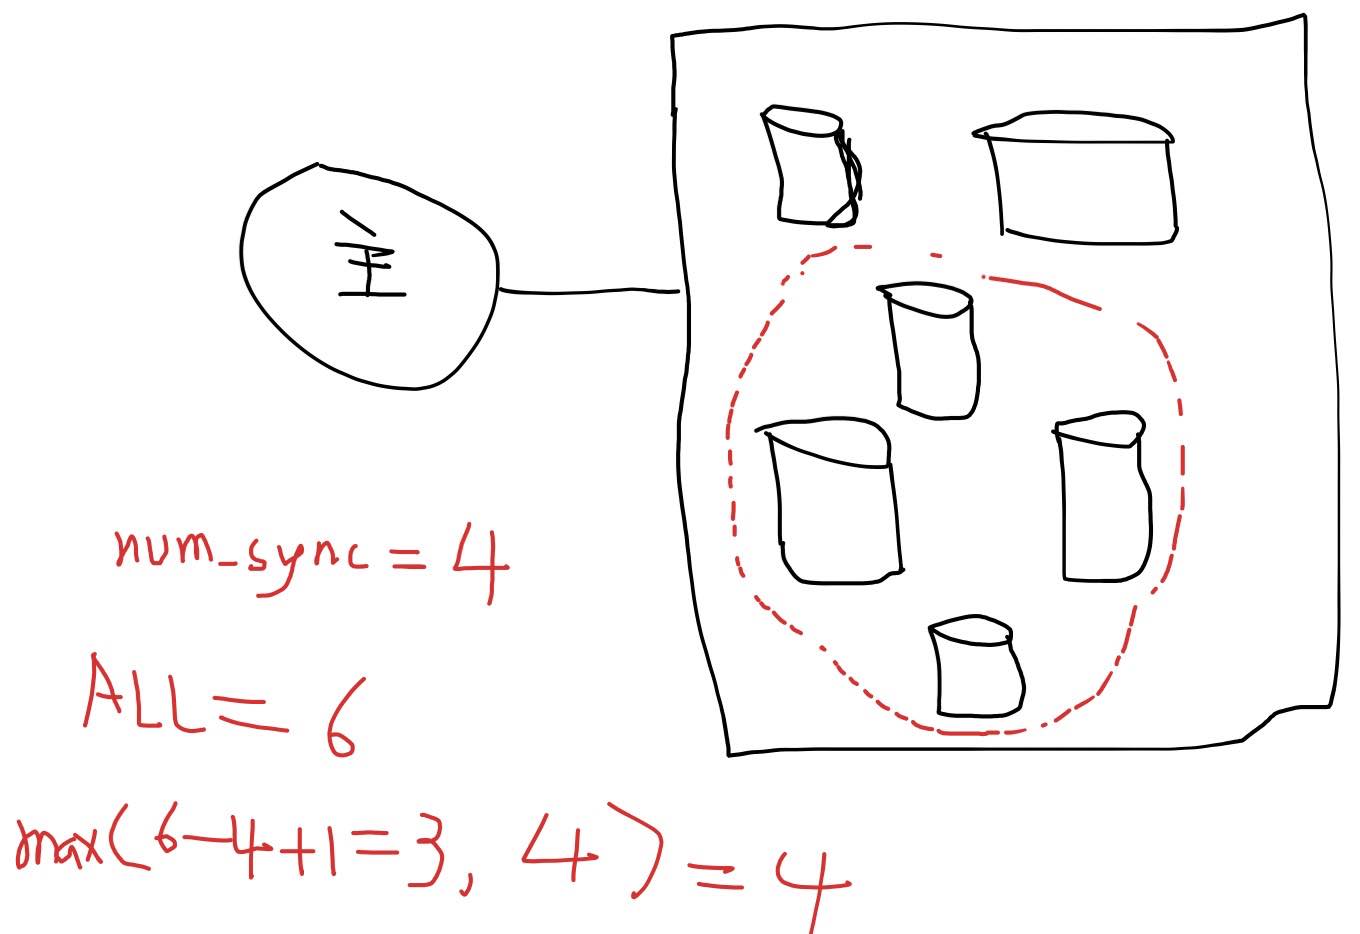 主
num_sync = 4
ALL = 6
max(6-4+1=3, 4) = 4